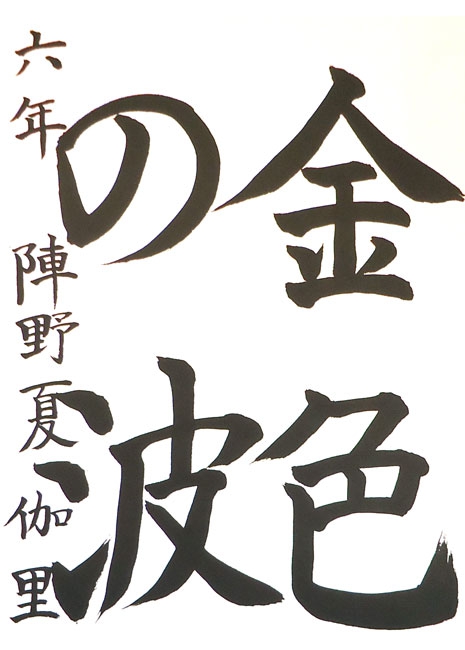 金色
の波
六年 陣野夏伽里